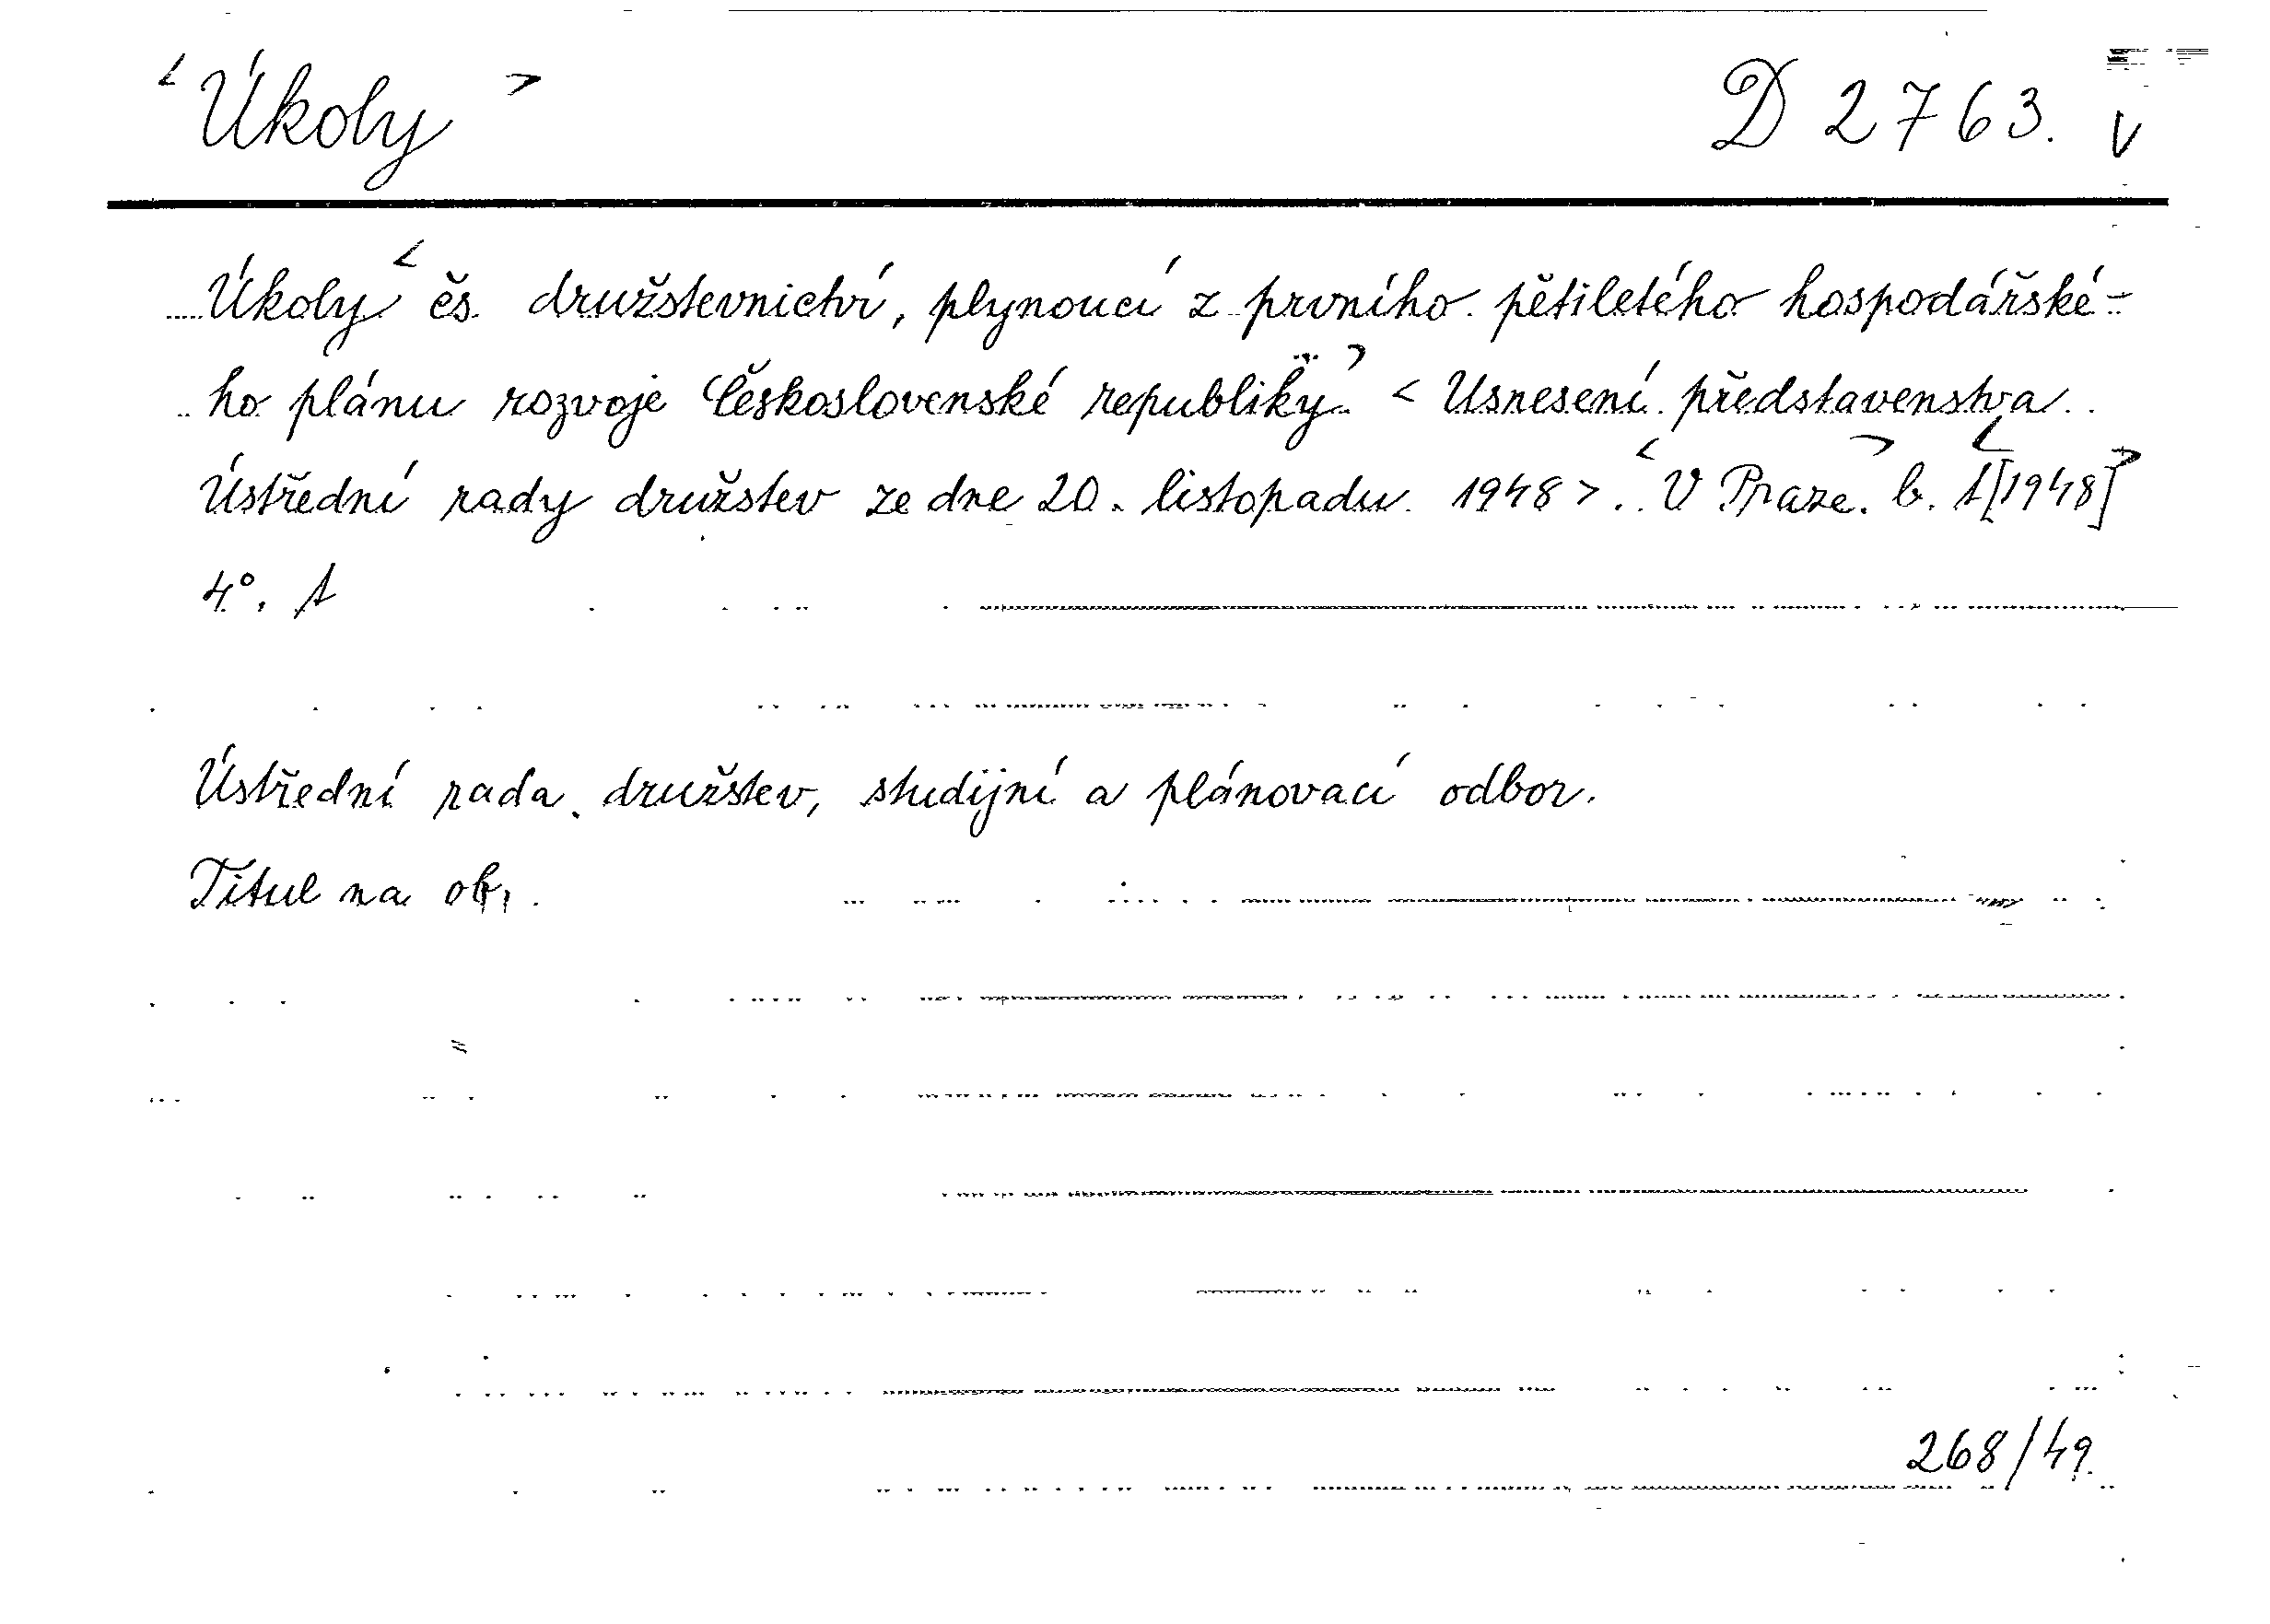 < Úkoly > D 2763. V
Úkoly < čs. družstevnictví, plynoucí z prvního pětiletého hospodářské-
ho plánu rozvoje Československé republiky. > < Usnesení představenstva
Ústřední rady družstev ze dne 20. listopadu 1948 >. < V Praze. > b. < t [1948] >
4°. 1
Ústřední rada družstev, studijní a plánovací odbor.
Titul na ob.
268/49.